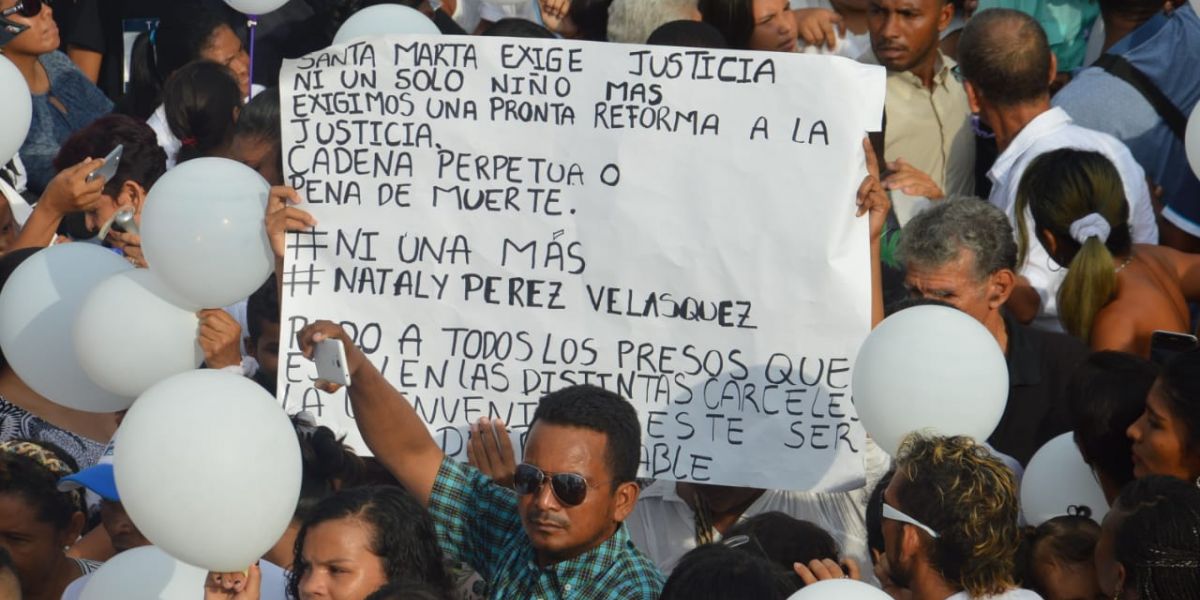 SANTA MARTA EXIGE JUSTICIA
NI UN SOLO NIÑO MAS
EXIGIMOS UNA PRONTA REFORMA A LA
JUSTICIA.
CADENA PERPETUA O
PENA DE MUERTE.
#NI UNA MÁS
#NATALY PEREZ VELASQUEZ
A TODOS LOS PRESOS QUE
EN LAS DISTINTAS CARCELES
LA ESTE SER